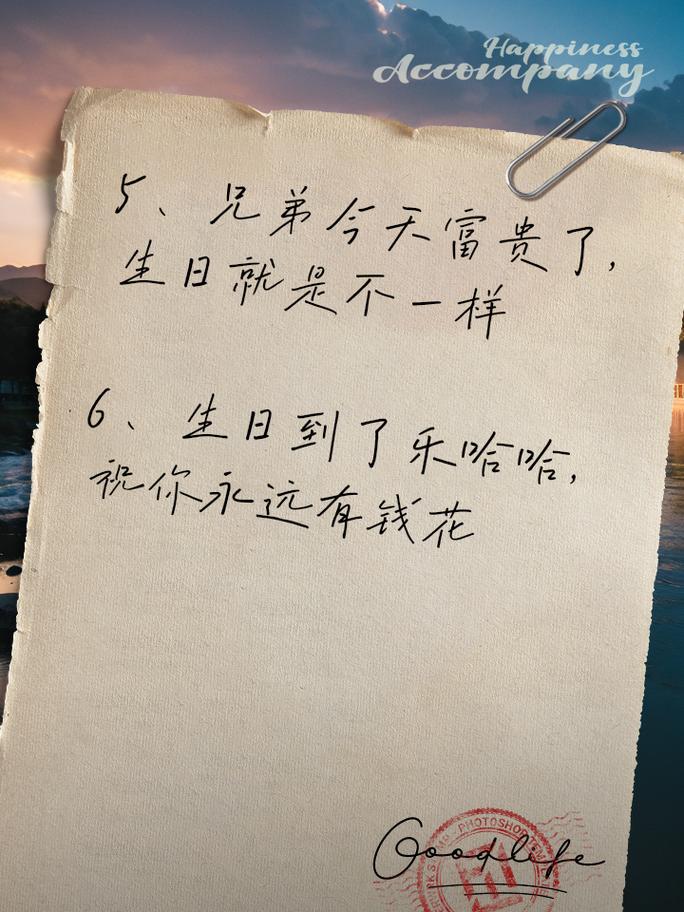 Happiness
Accompany
5、兄弟今天富贵了,
生日就是不一样
6、生日到了乐哈哈,
祝你永远有钱花
PHOTOSHOP
Goodlife